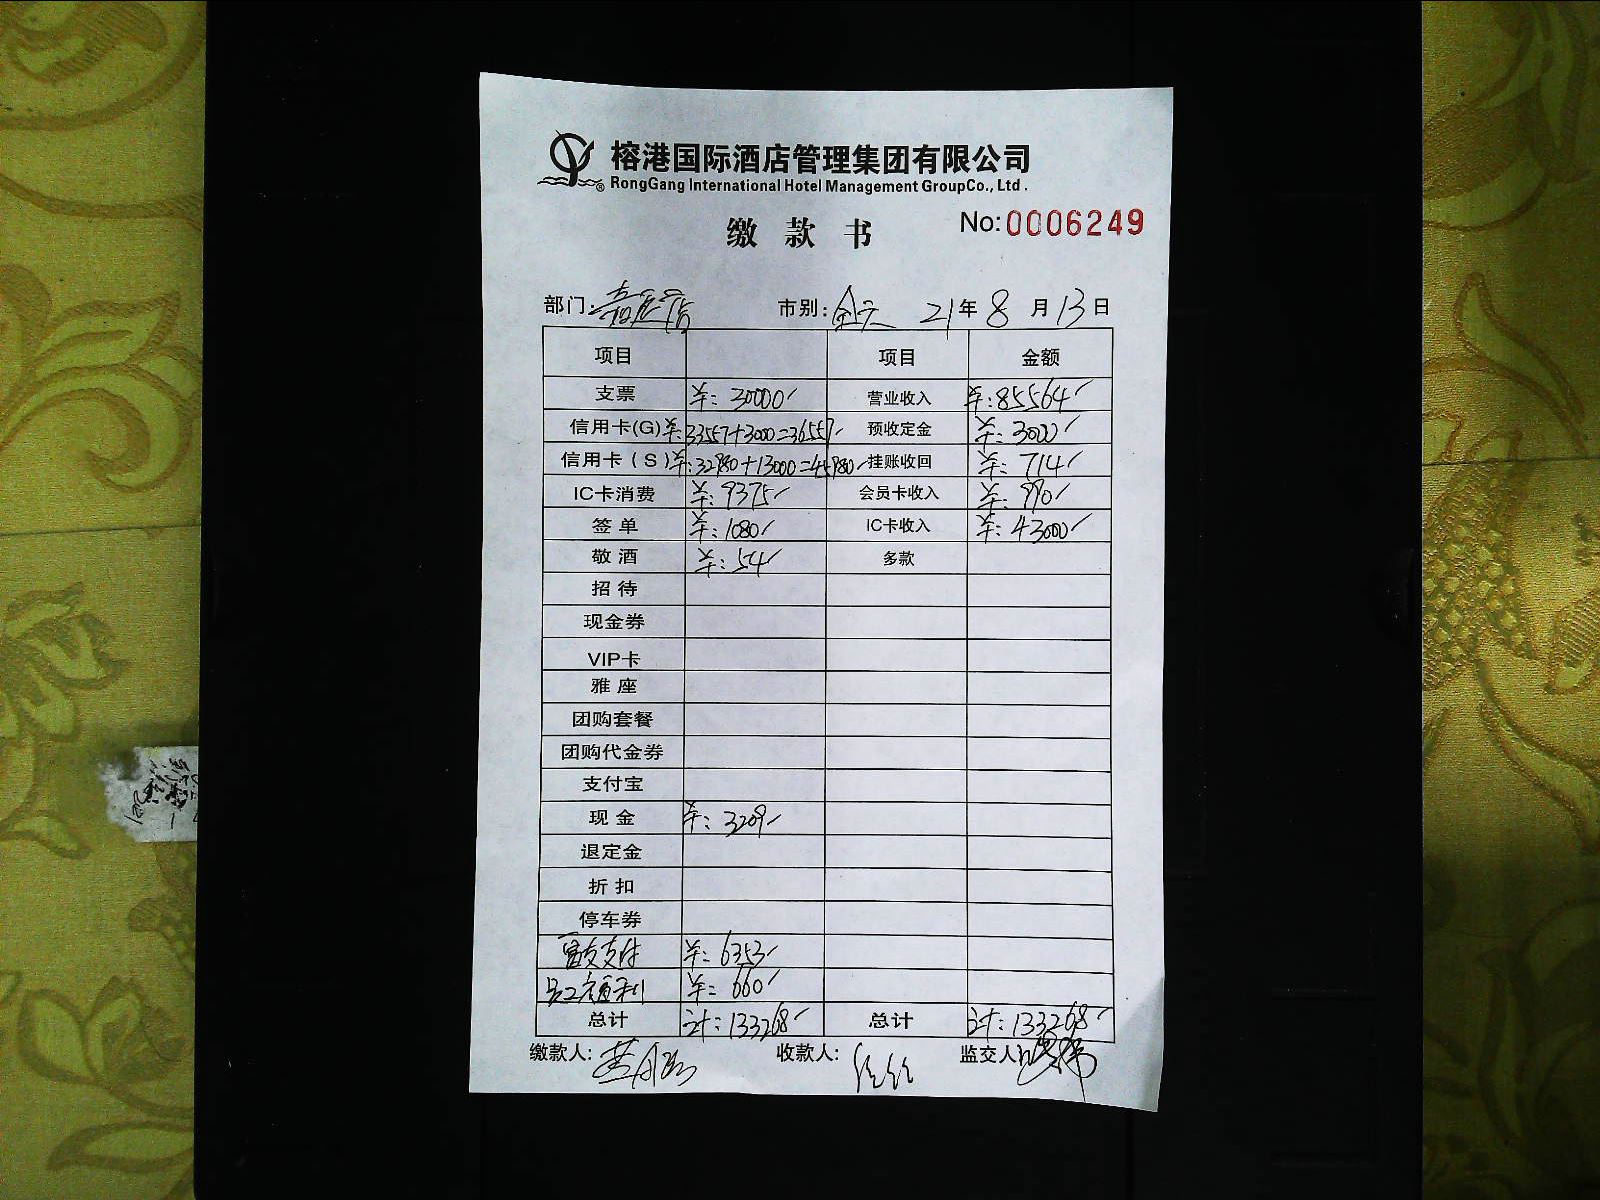 榕港国际酒店管理集团有限公司
RongGang International Hotel Management GroupCo., Ltd.
缴 款 书 No:0006249
部门: 市别: 全天 21年 8 月 13 日
项目 项目 金额
支票 ¥: 30000 营业收入 ¥: 85564
信用卡(G) ¥: 33557+3000=36557 预收定金 ¥: 3000
信用卡(S) ¥: 32980+13000=45980 挂账收回 ¥: 714
IC卡消费 ¥: 9375 会员卡收入 ¥: 990
签 单 ¥: 1080 IC卡收入 ¥: 43000
敬 酒 ¥: 54 多款
招 待
现金券
VIP卡
雅 座
团购套餐
团购代金券
支付宝
现 金 ¥: 3209
退定金
折 扣
停车券
富友支付 ¥: 6353
员工福利 ¥: 660
总计 计: 133268 总计 计: 133268
缴款人: 收款人: 监交人: